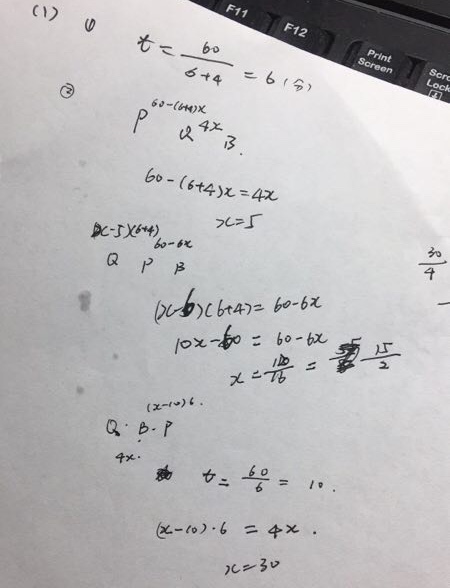 F11
F12
Print
Screen
Scro
Lock
(1) ①
t = 60/(6+4) = 6 (分)
②
60-(6+4)x
P Q 4x B.
60-(6+4)x = 4x
x=5
(x-5)(6+4)
60-6x
Q P B
(x-6)(6+4) = 60-6x
10x-60 = 60-6x
x = 120/16 = 15/2
30/4
(x-10)6.
Q. B. P
4x.
t = 60/6 = 10.
(x-10)·6 = 4x.
x=30